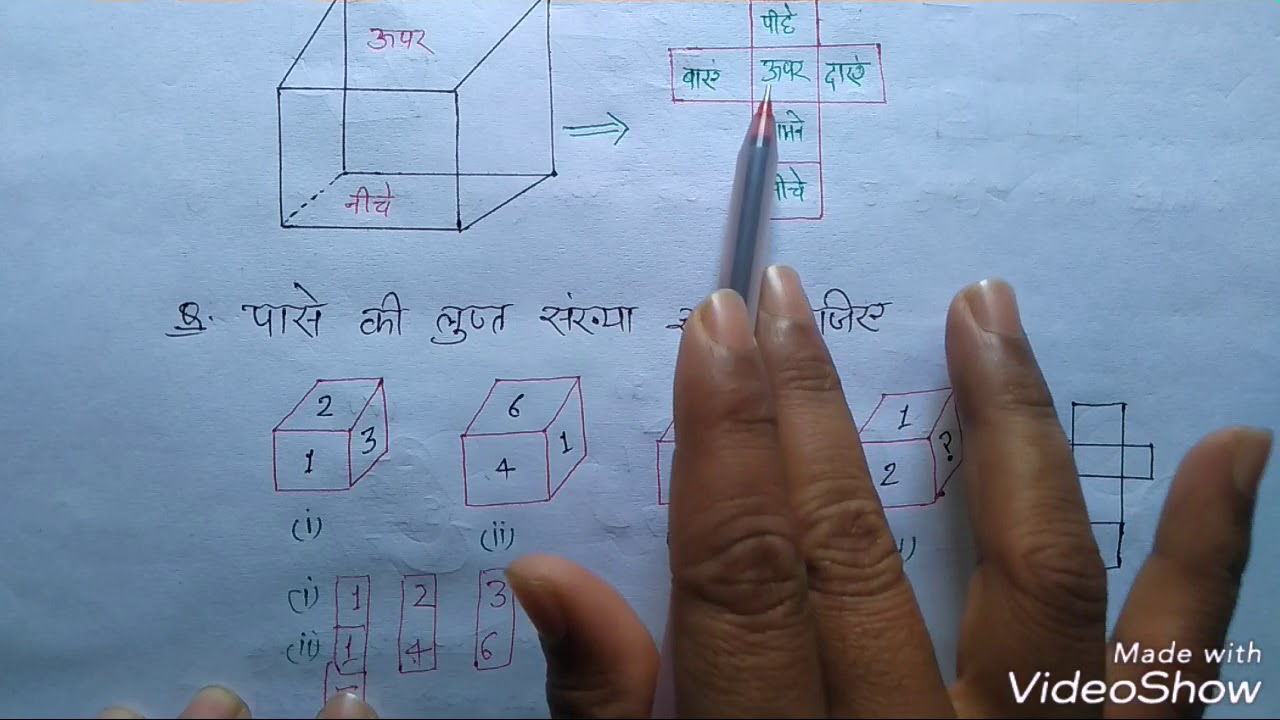 ऊपर
पीछे
बाएं ऊपर दाएं
नीचे
Q. पासे की लुप्त संख्या
2
1 3
6
4 1
1
2 ?
(i) (ii)
(i) 1 2 3
(ii) 1 4 6
Made with
VideoShow